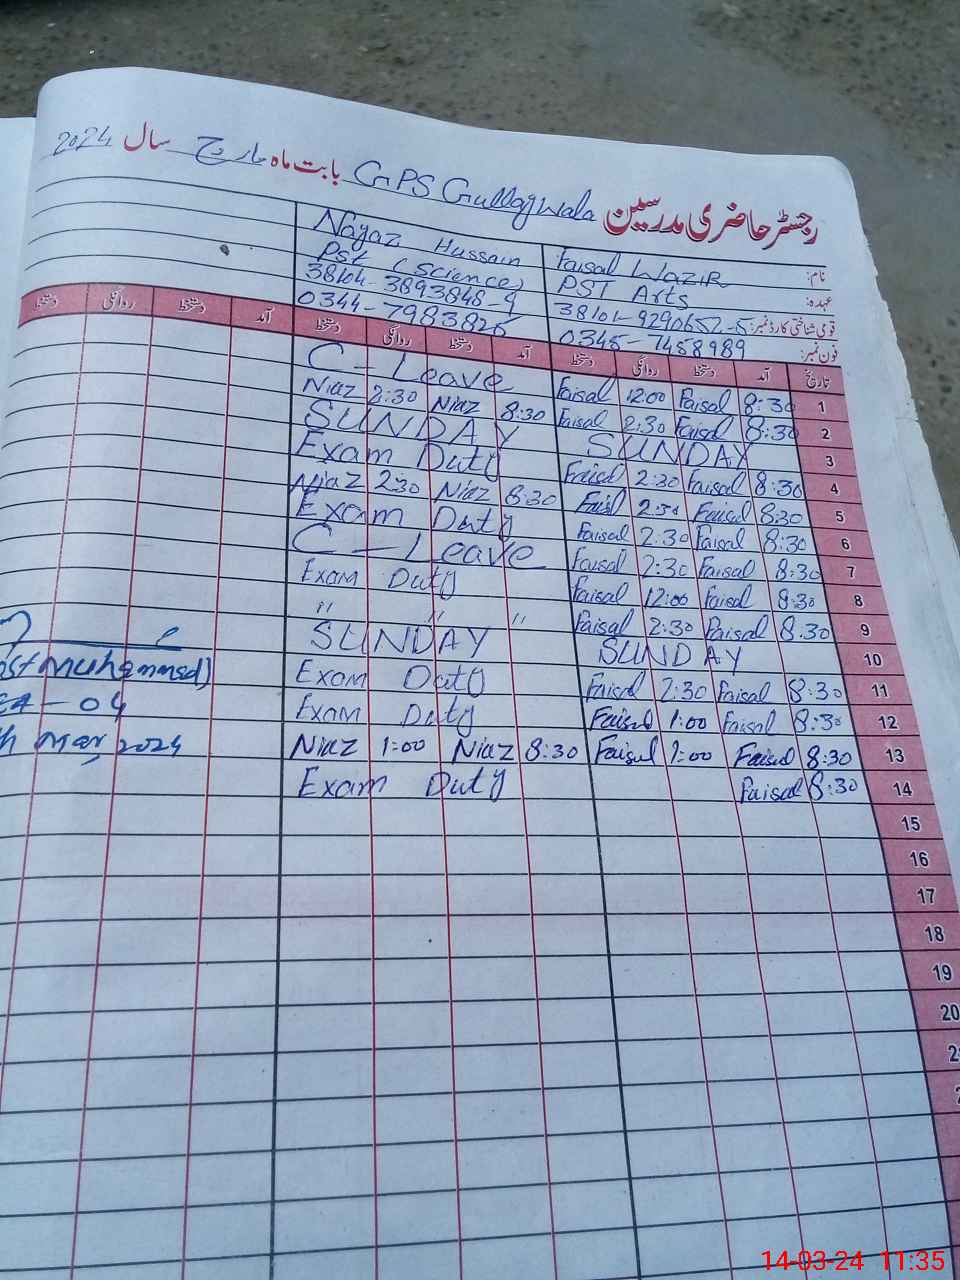 رجسٹر حاضری مدرسین GPS Gullagwala بابت ماہ مارچ سال 2024
نام: Faisal Wazir Nayaz Hussain
عہدہ: PST Arts Pst (Science)
قومی شناختی کارڈ نمبر: 38101-9290652-5 38104-3893848-9
فون نمبر: 0345-7458989 0344-7983826
تاریخ آمد دستخط روانگی دستخط آمد دستخط روانگی دستخط آمد دستخط روانگی دستخط
1 8:30 Faisal 12:00 Faisal C-Leave
2 8:30 Faisal 2:30 Faisal 8:30 Niaz 2:30 Niaz
3 SUNDAY SUNDAY
4 8:30 Faisal 2:30 Faisal Exam Duty
5 8:30 Faisal 2:30 Faisal 8:30 Niaz 2:30 Niaz
6 8:30 Faisal 2:30 Faisal Exam Duty
7 8:30 Faisal 2:30 Faisal C-Leave
8 8:30 Faisal 12:00 Faisal Exam Duty
9 8:30 Faisal 2:30 Faisal " " "
10 SUNDAY SUNDAY
11 8:30 Faisal 2:30 Faisal Exam Duty
12 8:30 Faisal 1:00 Faisal Exam Duty
13 8:30 Faisal 1:00 Faisal 8:30 Niaz 1:00 Niaz
14 8:30 Faisal Exam Duty
15
16
17
18
19
20
Muhammad)
- 04
Mar, 2024
14-03-24 11:35